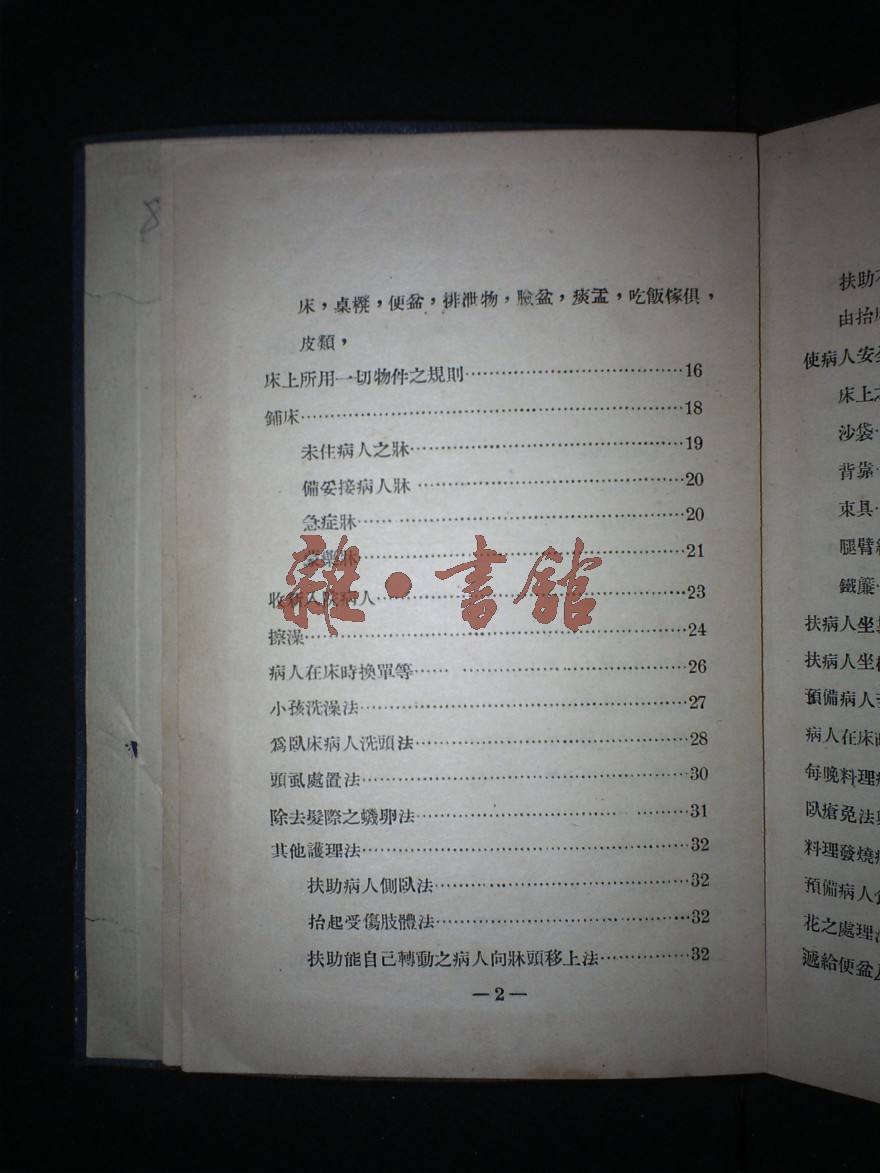 8
床，桌櫈，便盆，排泄物，臉盆，痰盂，吃飯傢俱，
皮類，
床上所用一切物件之規則…………16
鋪床…………18
未住病人之牀…………19
備妥接病人牀…………20
急症牀…………20
牀…………21
收新入院病人…………23
擦澡…………24
病人在床時換單等…………26
小孩洗澡法…………27
爲臥床病人洗頭法…………28
頭虱處置法…………30
除去髮際之蟣卵法…………31
其他護理法…………32
扶助病人側臥法…………32
抬起受傷肢體法…………32
扶助能自己轉動之病人向牀頭移上法…………32
—2—
雜·書館
扶助不
由抬
使病人安全
床上
沙袋
背靠
束具
腿臂
鐵簾
扶病人坐
扶病人坐
預備病人
病人在床
每晚料理
臥瘡免法
料理發燒
預備病人
花之處理
遞給便盆